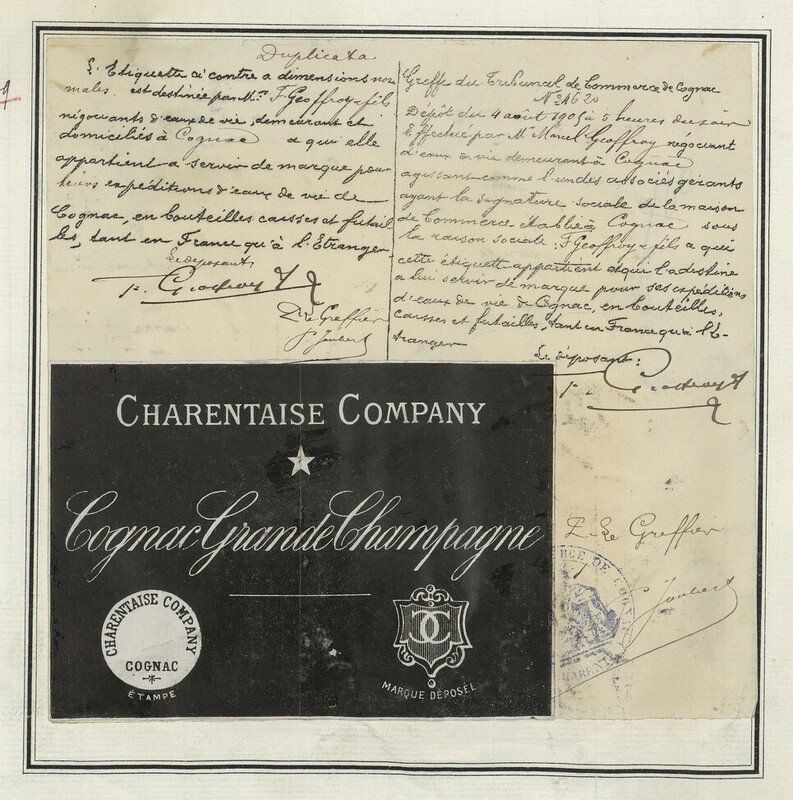 Duplicata
L'Etiquette ci contre a dimensions nor
males. est destinée par Mrs F. Geoffroy & fils
négociants d'eaux de vie, demeurant et
domiciliés à Cognac a qui elle
appartient a servir de marque pour
leurs expéditions d'eaux de vie de
Cognac, en bouteilles caisses et futail
les, tant en France qu'à l'Etranger
Le déposant
F. Geoffroy & f
P. Le Greffier
P. Joubert
Greffe du Tribunal de Commerce de Cognac
No 4620
Dépôt du 4 août 1905 à 5 heures du soir
Effectué par Mr Marcel Geoffroy négociant
d'eaux de vie demeurant à Cognac
agissant comme l'un des associés gérants
ayant la signature sociale de la maison
de Commerce établie à Cognac sous
la raison sociale: F Geoffroy & fils a qui
cette étiquette appartient et qui l'a destine
a lui servir de marque pour ses expéditions
d'eaux de vie de Cognac, en bouteilles,
caisses et futailles, tant en France qu'à l'E-
tranger
Le déposant:
F. Geoffroy & f
P. Le Greffier
P. Joubert
CHARENTAISE COMPANY
Cognac Grande Champagne
CHARENTAISE COMPANY
COGNAC
ÉTAMPE
CC
MARQUE DÉPOSÉE
DE COGN